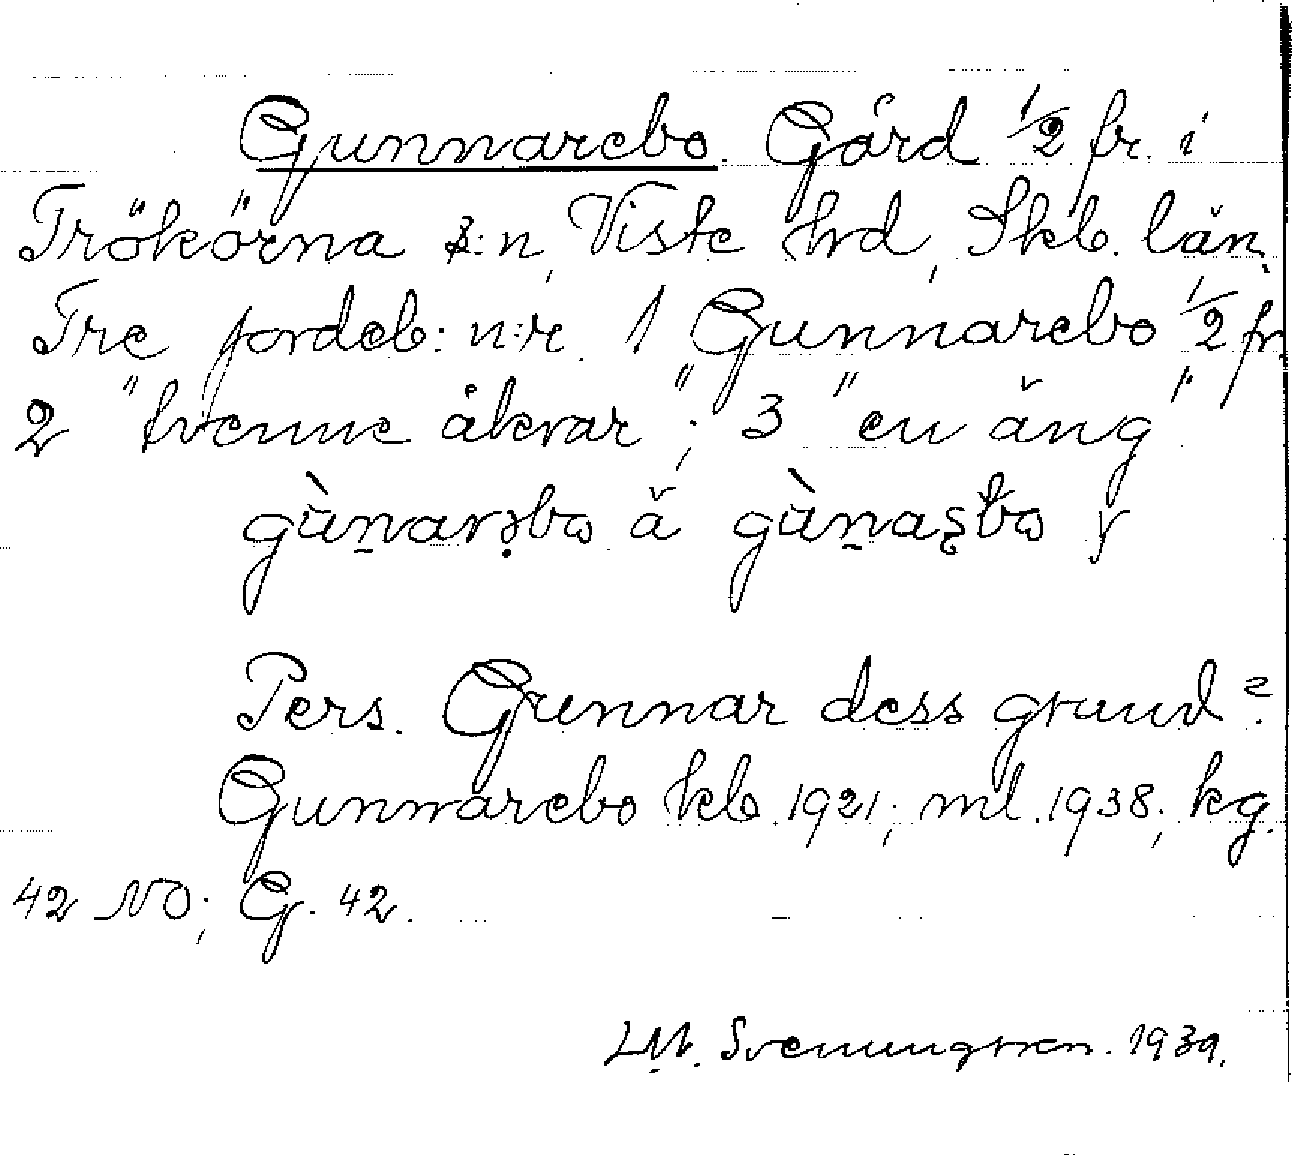 Gunnarebo. Gård 1/2 fr. i
Trökörna s:n, Viste hrd, Skb. län.
Tre jordeb: n:r. 1 Gunnarebo 1/2 fr.
2 "tvenne åkrar"; 3 "en äng".
gùṉarə̣bω ä gùṉaʂbω y
Pers. Gunnar dess grund?
Gunnarebo kb. 1921; ml. 1938; kg.
42 NO; G. 42.
Svenungsson. 1939.